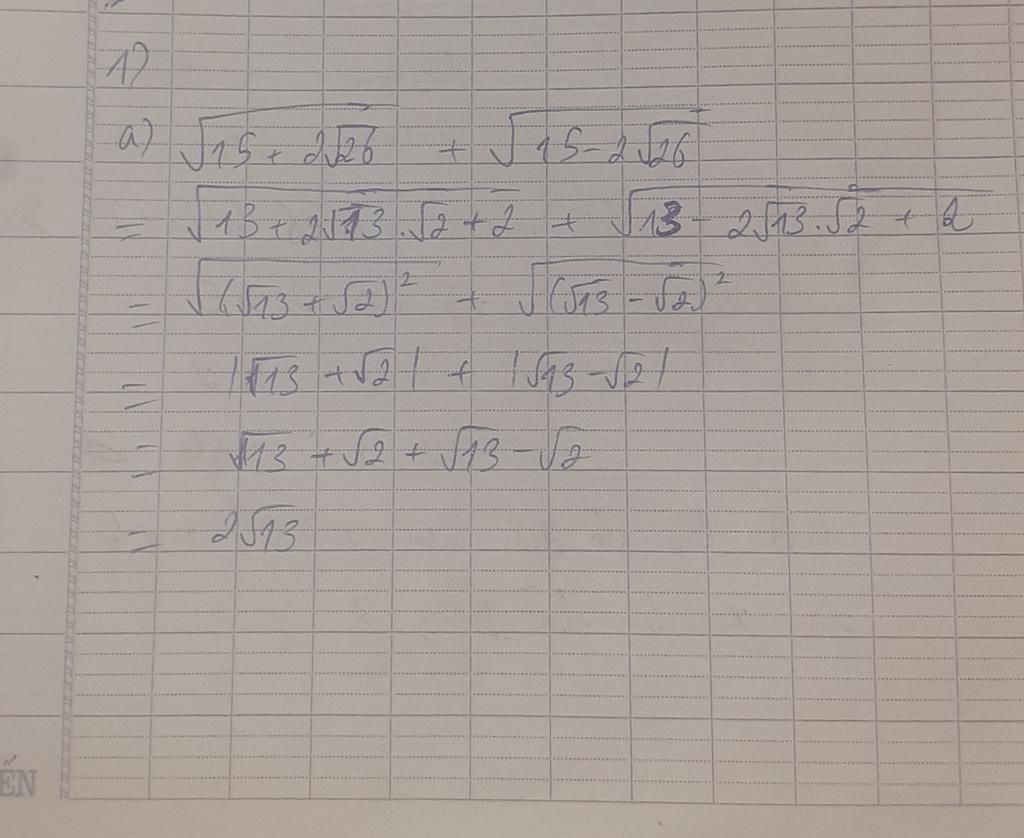 1)
a) √(15 + 2√26) + √(15 - 2√26)
= √(13 + 2√13 . √2 + 2) + √(13 - 2√13 . √2 + 2)
= √((√13 + √2)²) + √((√13 - √2)²)
= |√13 + √2| + |√13 - √2|
= √13 + √2 + √13 - √2
= 2√13
ẾN